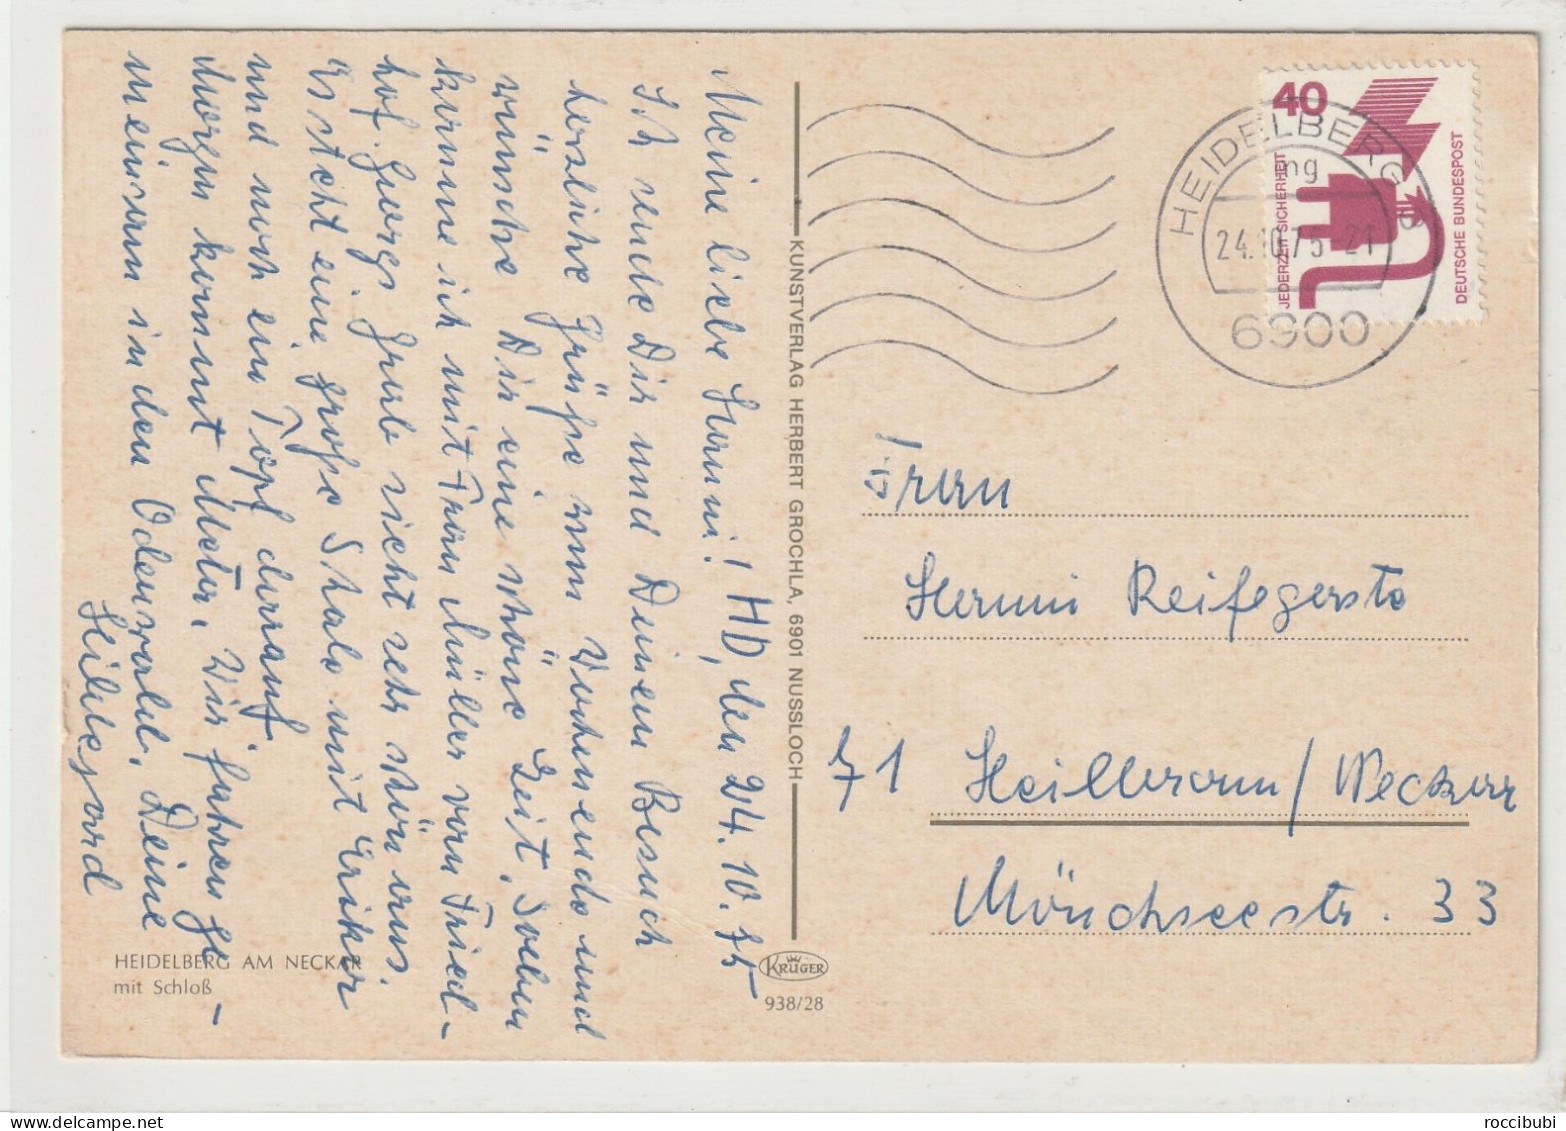 Meine liebe Hermi! HD, den 24. 10. 75
Ich sende Dir und Deinem Besuch
herzliche Grüße zum Wochenende und
wünsche Dir eine schöne Zeit. Soeben
komme ich mit Frau Müller vom Fried-
hof. Georgs Grab sieht sehr schön aus.
Es steht eine große Schale mit Erika
und noch ein Topf darauf.
Morgen kommt Meta. Wir fahren ge-
meinsam in den Odenwald. Deine
Hildegard
HEIDELBERG AM NECKAR
mit Schloß
KUNSTVERLAG HERBERT GROCHLA, 6901 NUSSLOCH
KRÜGER
938/28
40
JEDERZEIT SICHERHEIT
DEUTSCHE BUNDESPOST
HEIDELBERG
mg
24.10.75-21
6900
Frau
Hermi Reifegerste
71 Heilbronn/Neckar
Mönchseestr. 33
delcampe.net
roccibubi